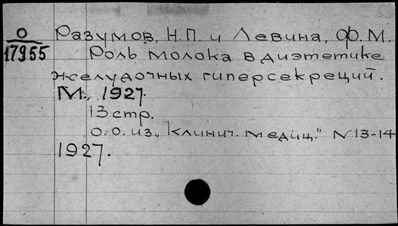 О
17955
Разумов, Н.П. и Левина, Ф.М.
Роль молока в диэтетике
желудочных гиперсекреций.
М., 1927
13 стр.
О.О. из „Клинич. медиц." N 13-14
1927.